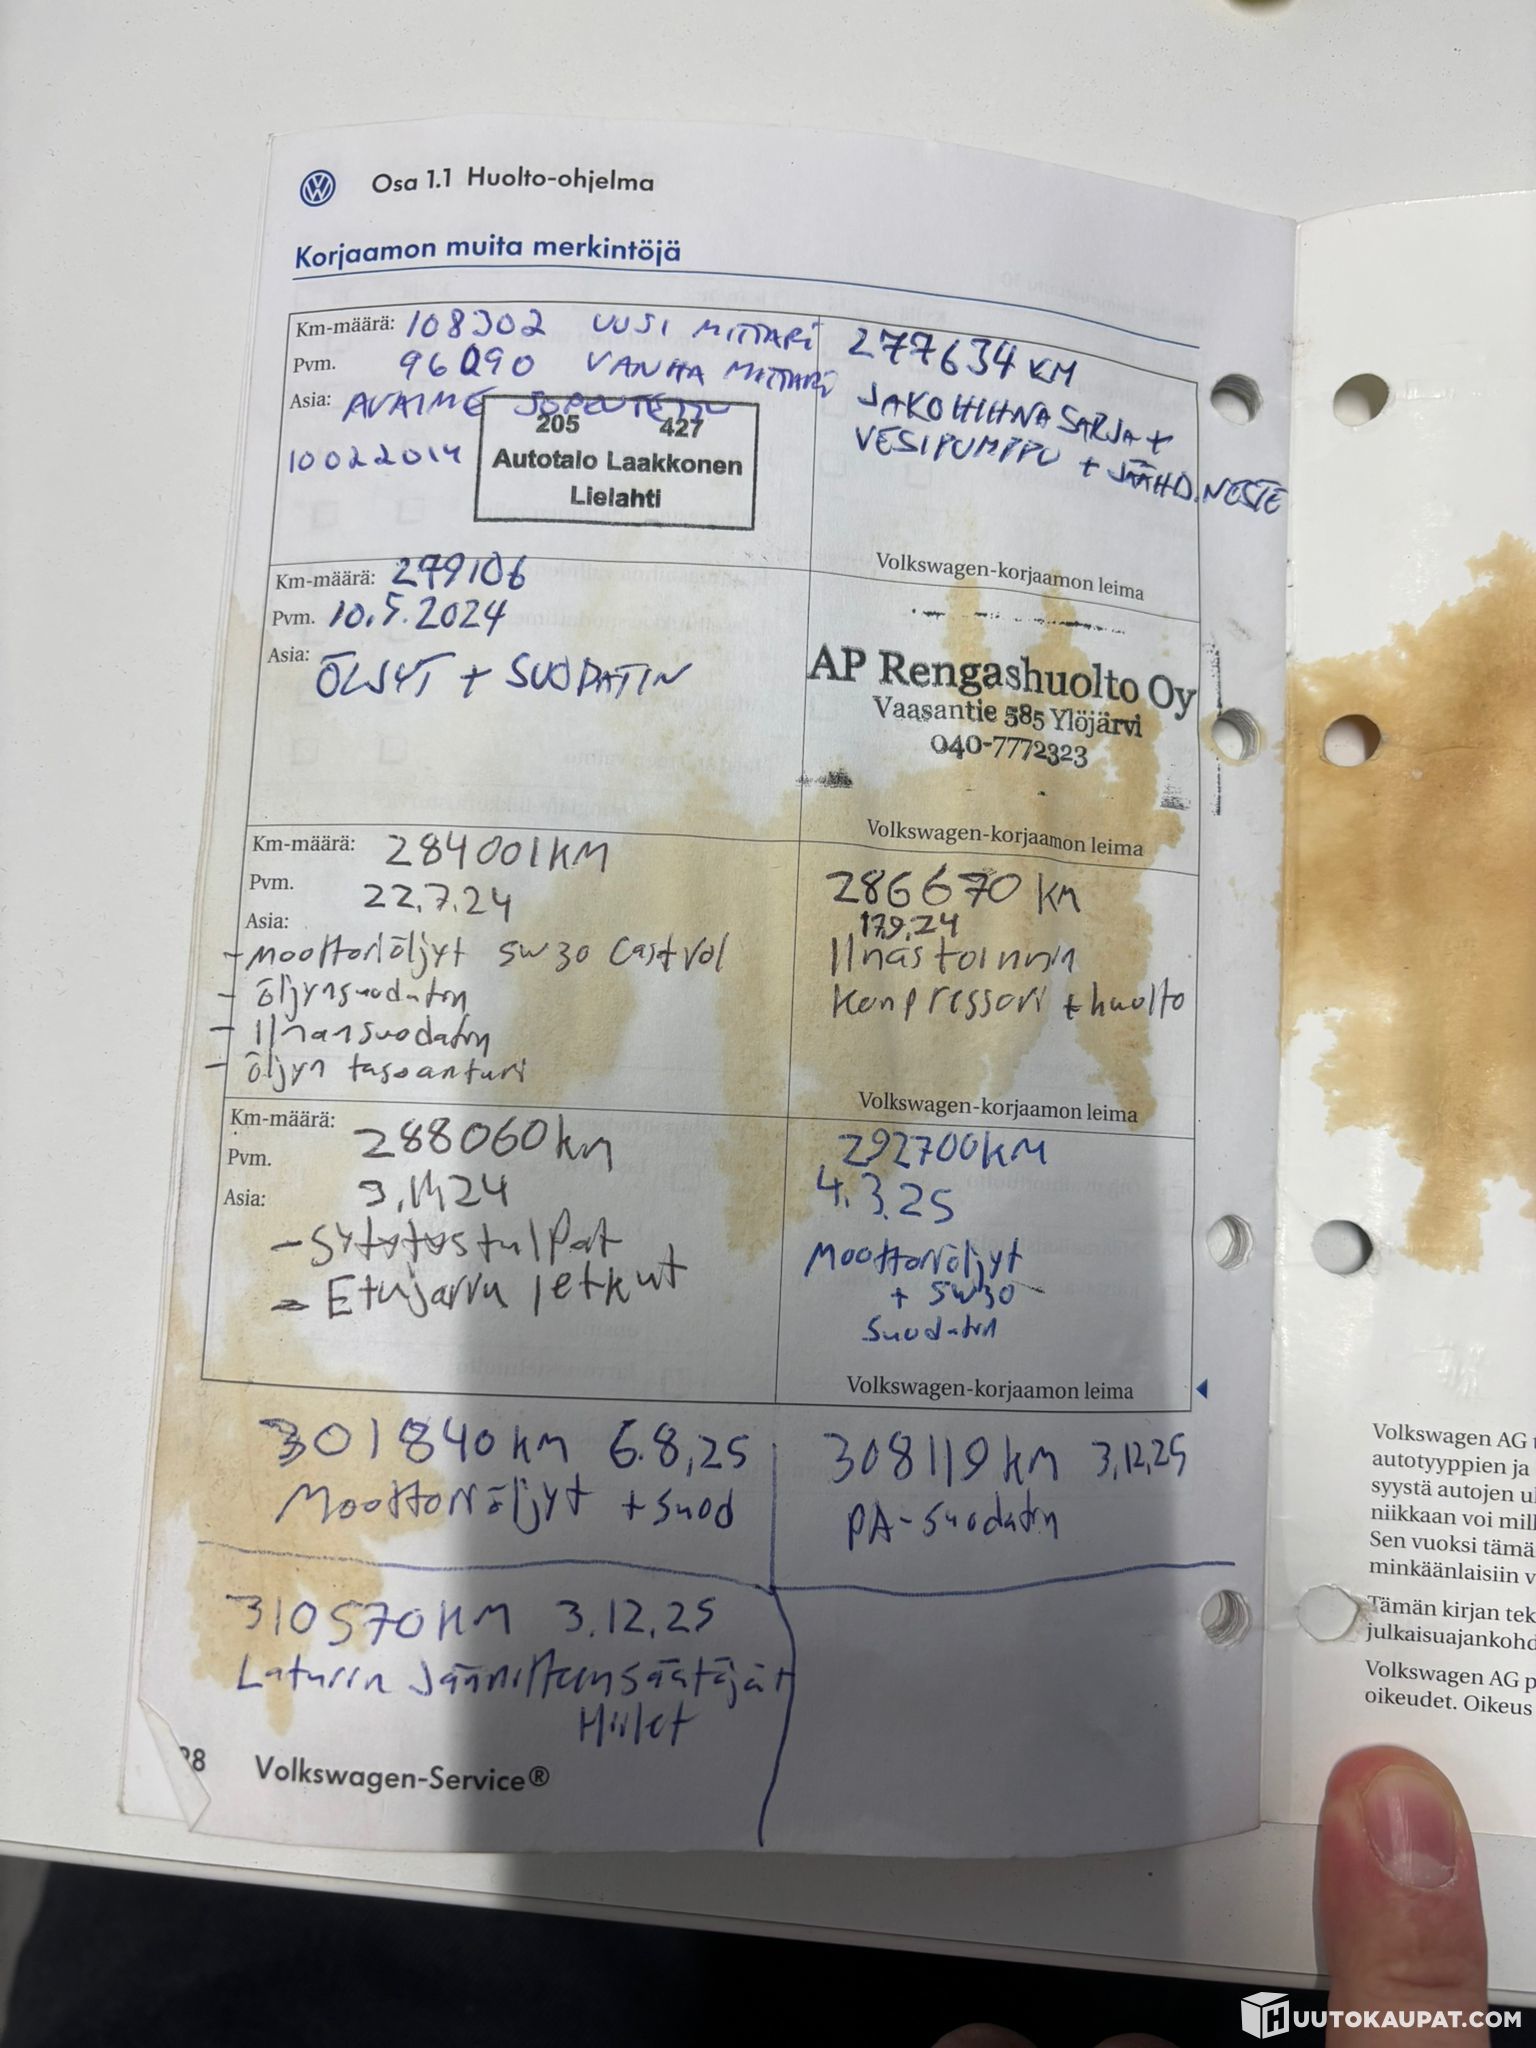 Osa 1.1 Huolto-ohjelma
Korjaamon muita merkintöjä
Km-määrä: 108302 UUSI MITTARI
Pvm. 96090 VANHA MITTARI
Asia: AVAIME SOPEUTETTU
10022014
205 427
Autotalo Laakkonen
Lielahti
277634 KM
JAKOHIHNASARJA +
VESIPUMPPU + JÄÄHD.NESTE
Volkswagen-korjaamon leima
Km-määrä: 279106
Pvm. 10.5.2024
Asia: ÖLJYT + SUODATIN
AP Rengashuolto Oy
Vaasantie 585 Ylöjärvi
040-7772323
Volkswagen-korjaamon leima
Km-määrä: 284001KM
Pvm. 22.7.24
Asia:
- Moottoriöljyt 5w30 Castrol
- öljynsuodatin
- Ilmansuodatin
- öljyn tasoanturi
286670 KM
17.9.24
Ilmastoinnin
kompressori + huolto
Volkswagen-korjaamon leima
Km-määrä: 288060km
Pvm.
Asia: 3.11.24
- Sytytystulpat
- Etujarru letkut
292700KM
4.3.25
Moottoriöljyt
+ 5w30
suodatin
Volkswagen-korjaamon leima
301840 KM 6.8.25
Moottoriöljyt + suod
308119 KM 3.12.25
PA-suodatin
310570KM 3.12.25
Laturin Jännitteensäätäjät
Hiilet
Volkswagen-Service®
Volkswagen AG
autotyyppien ja
syystä autojen
niikkaan voi
Sen vuoksi tämä
minkäänlaisiin
Tämän kirjan
julkaisuajankohd
Volkswagen AG
oikeudet. Oikeus
HUUTOKAUPAT.COM